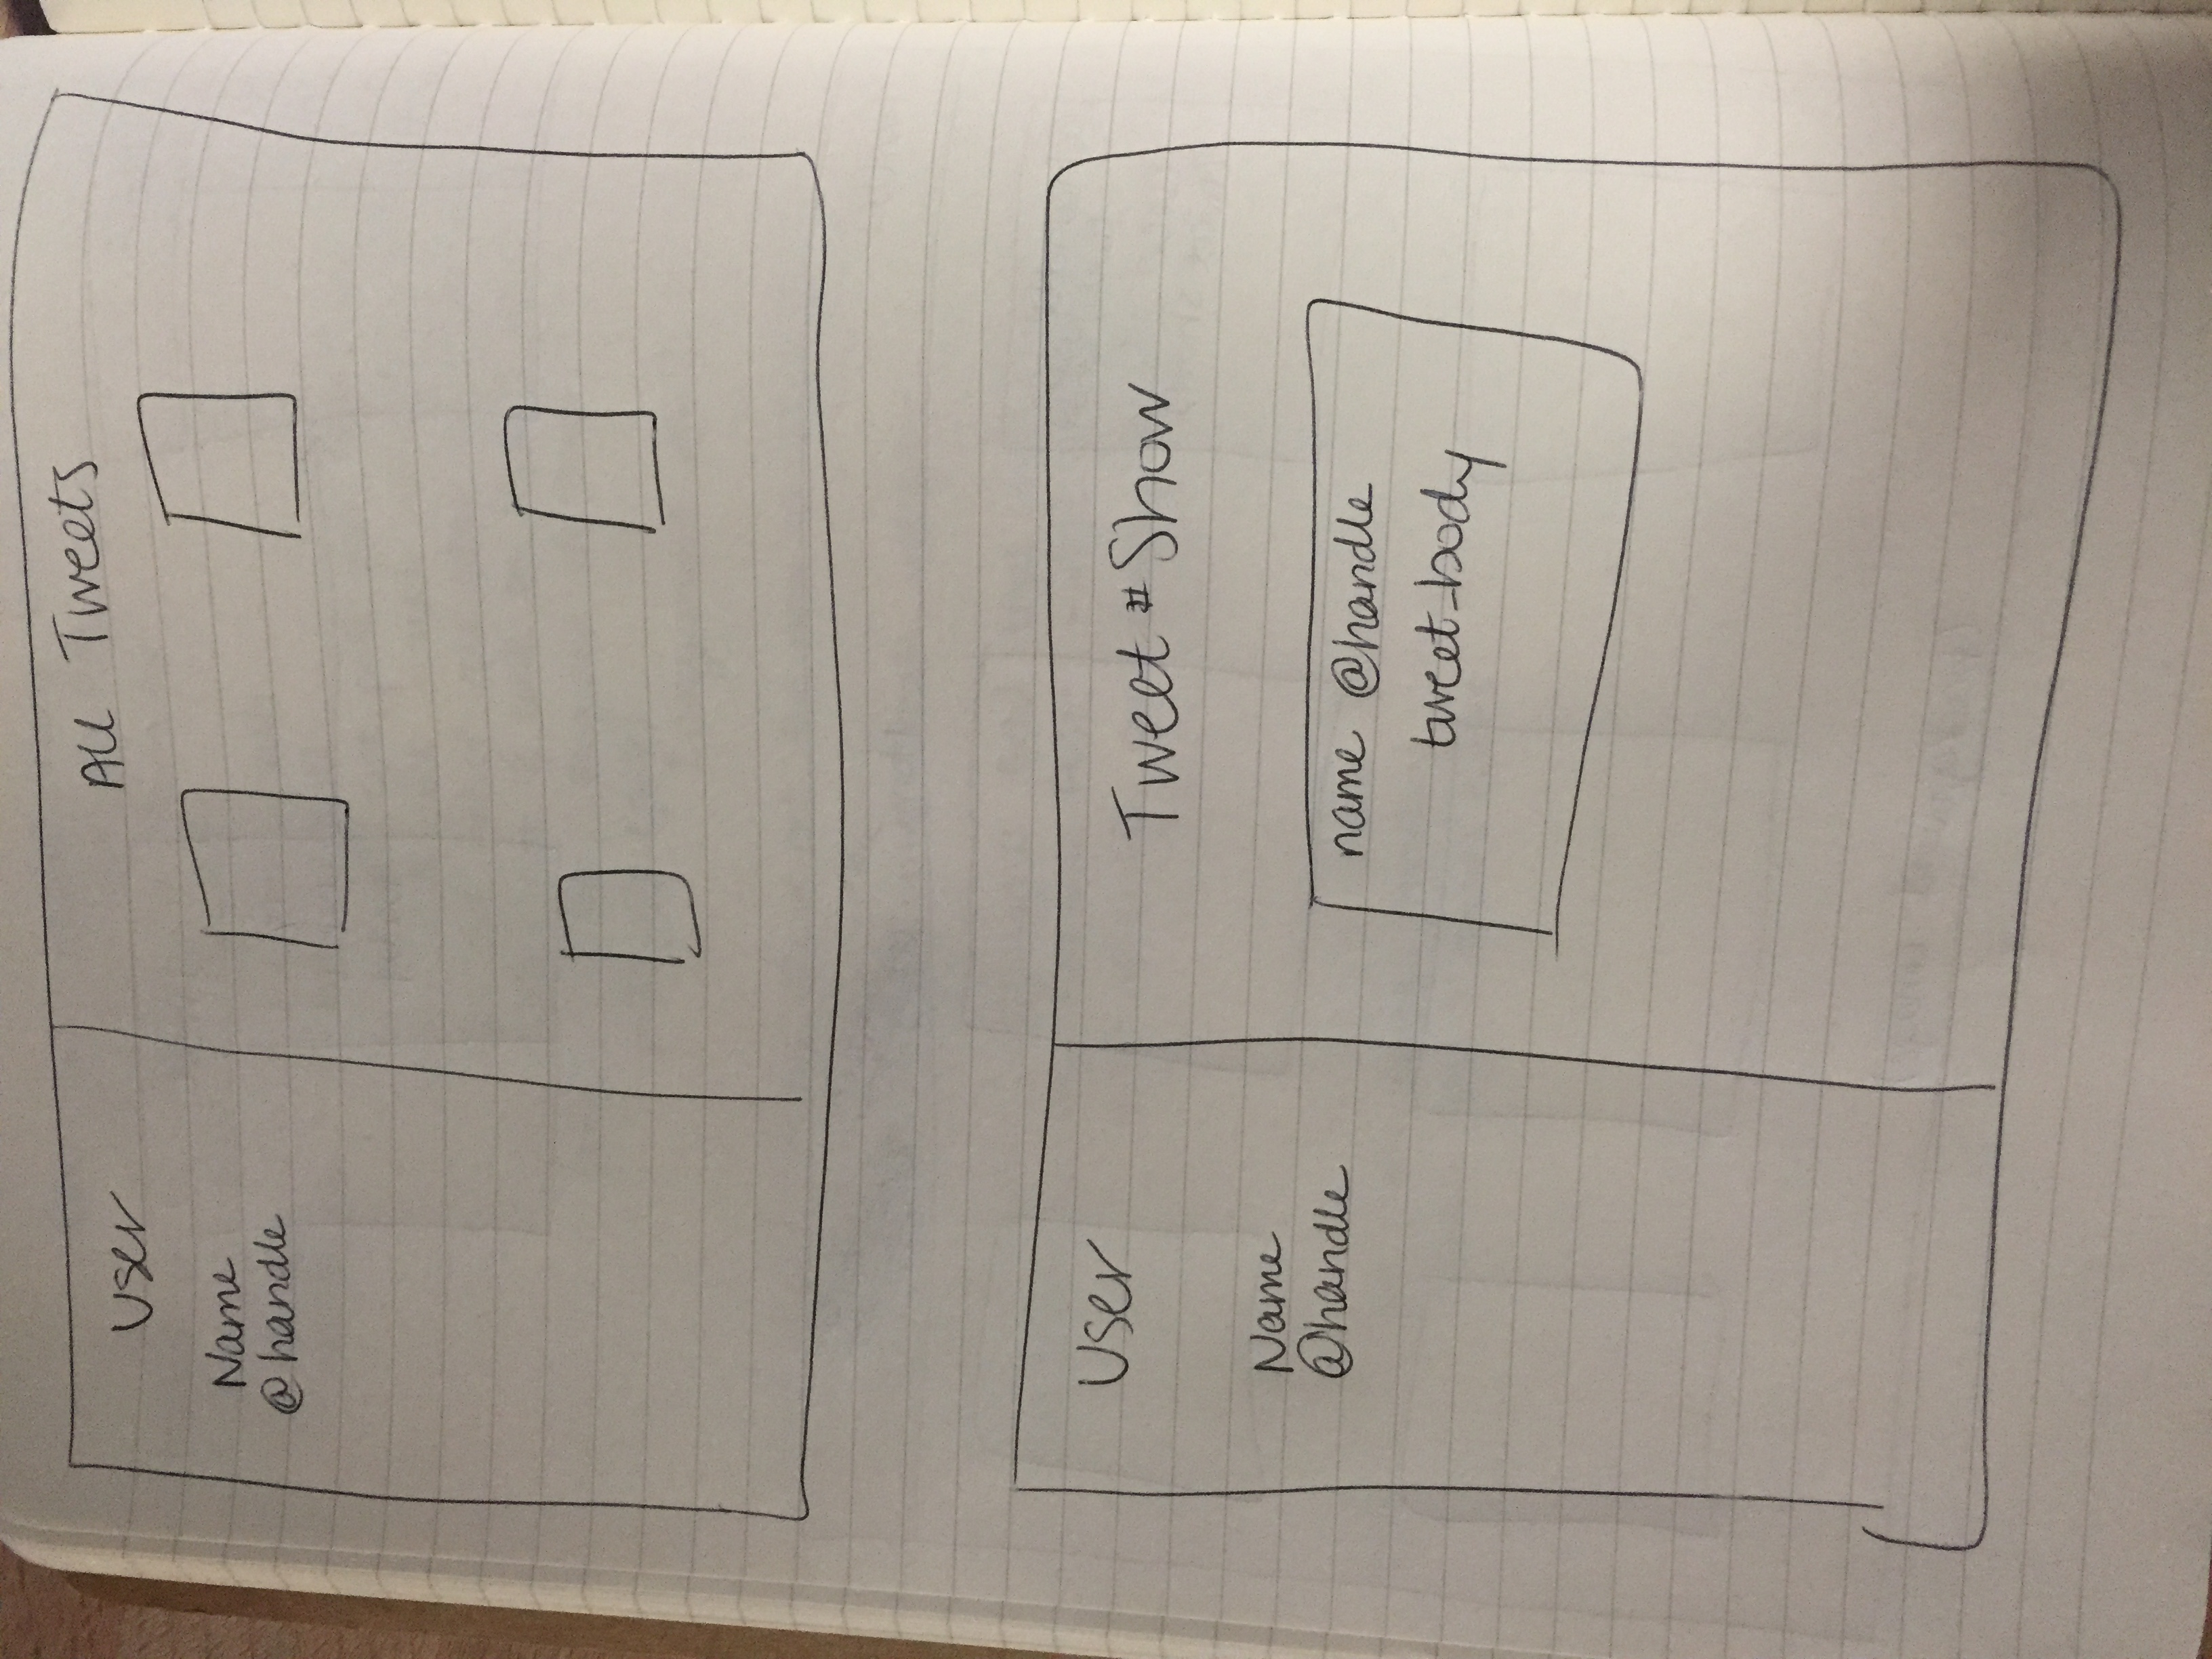 User
Name
@handle
All Tweets
User
Name
@handle
Tweet #Show
name @handle
tweet_body